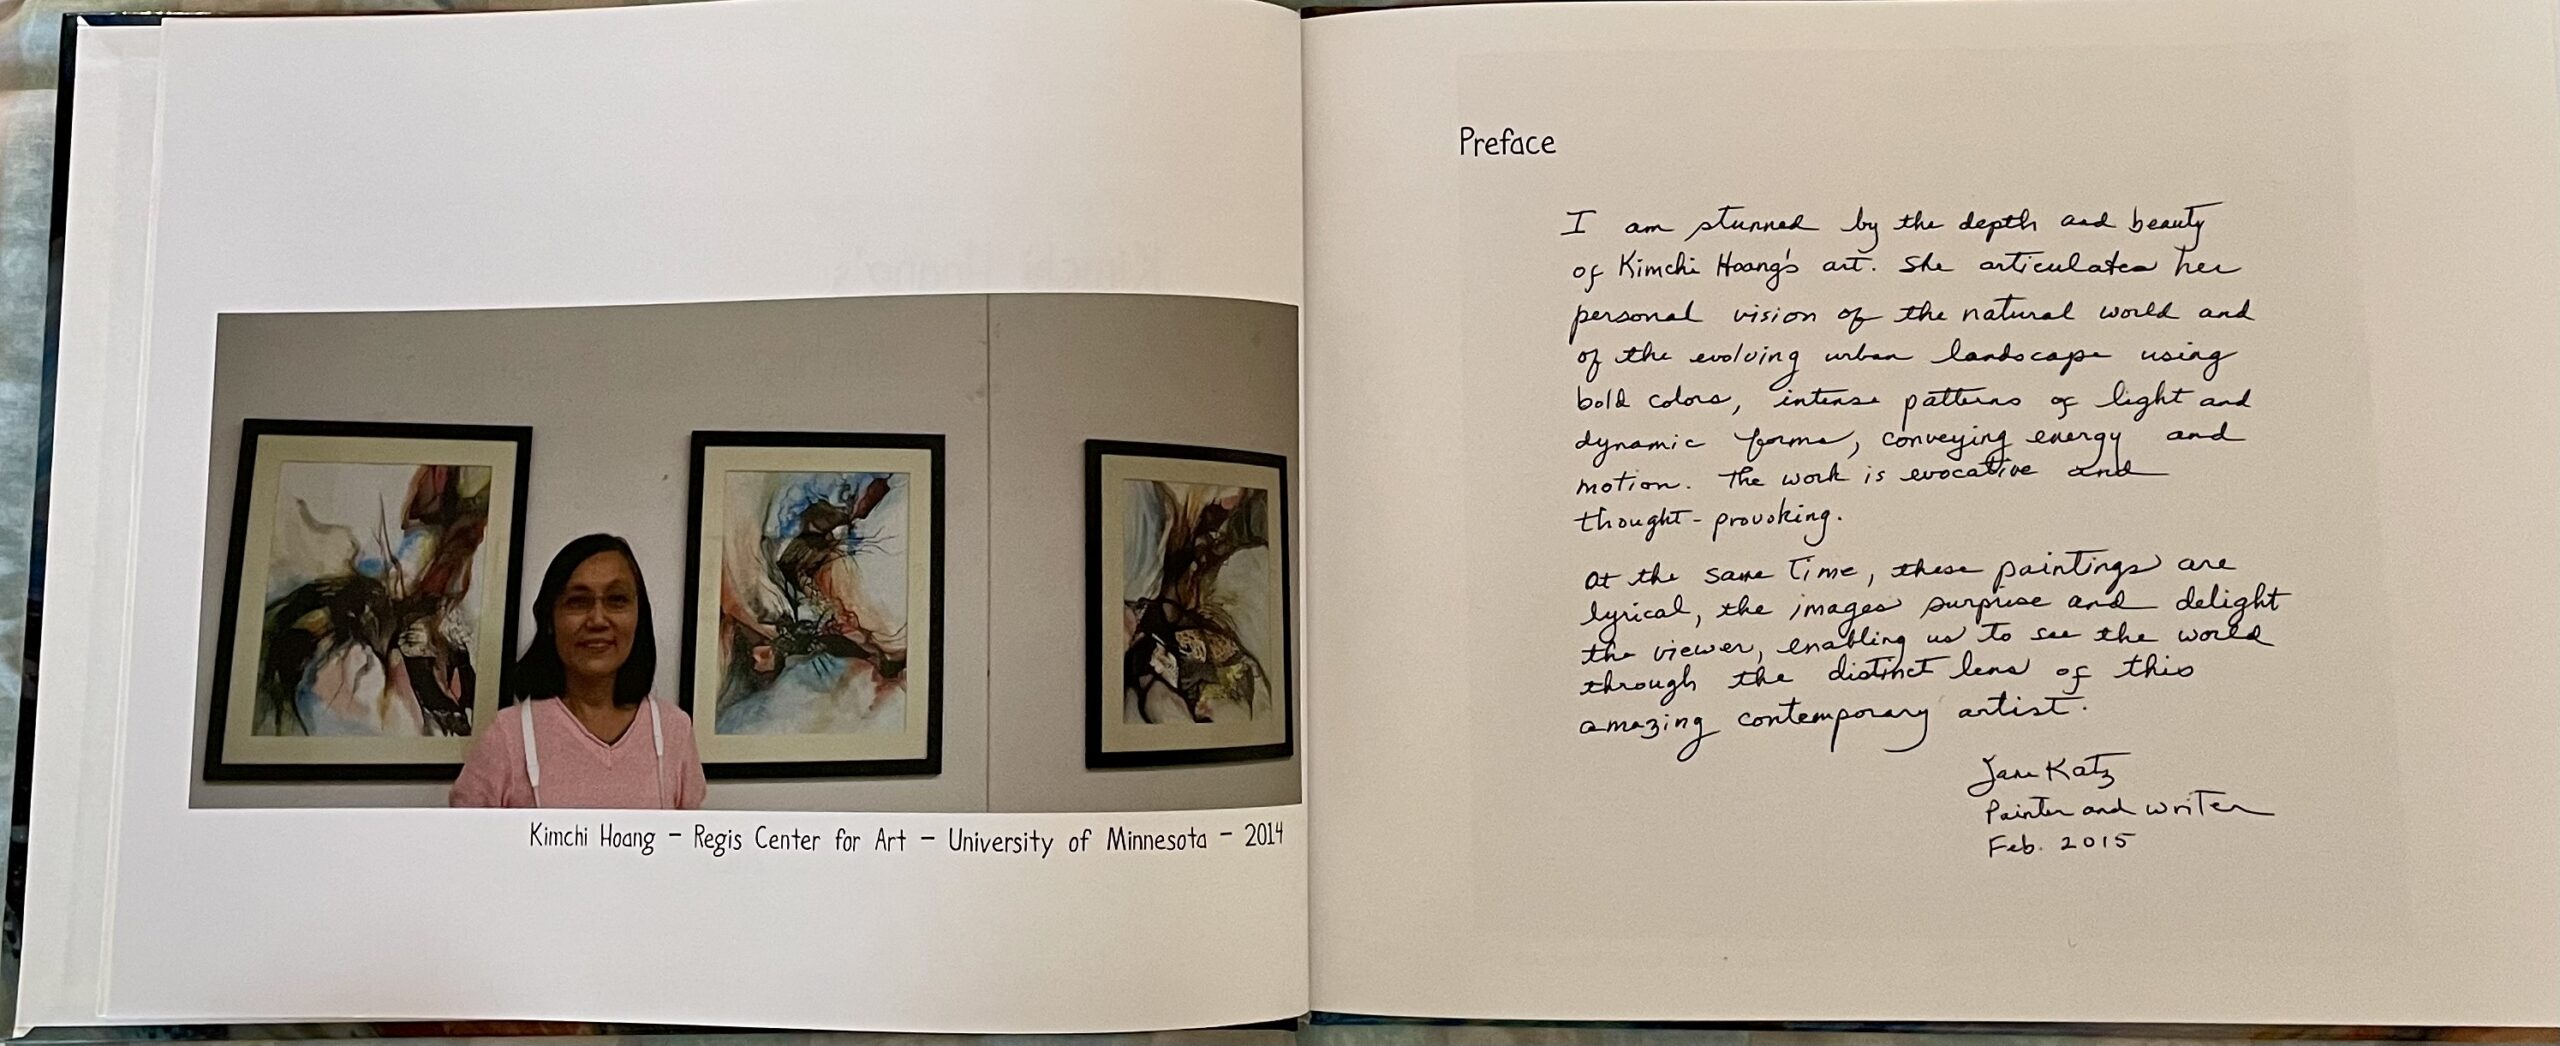 Kimchi Hoang – Regis Center for Art – University of Minnesota – 2014
Preface
I am stunned by the depth and beauty
of Kimchi Hoang's art. She articulates her
personal vision of the natural world and
of the evolving urban landscape using
bold colors, intense patterns of light and
dynamic forms, conveying energy and
motion. The work is evocative and
thought-provoking.
At the same time, these paintings are
lyrical, the images surprise and delight
the viewer, enabling us to see the world
through the distinct lens of this
amazing contemporary artist.
Jane Katz
Painter and writer
Feb. 2015